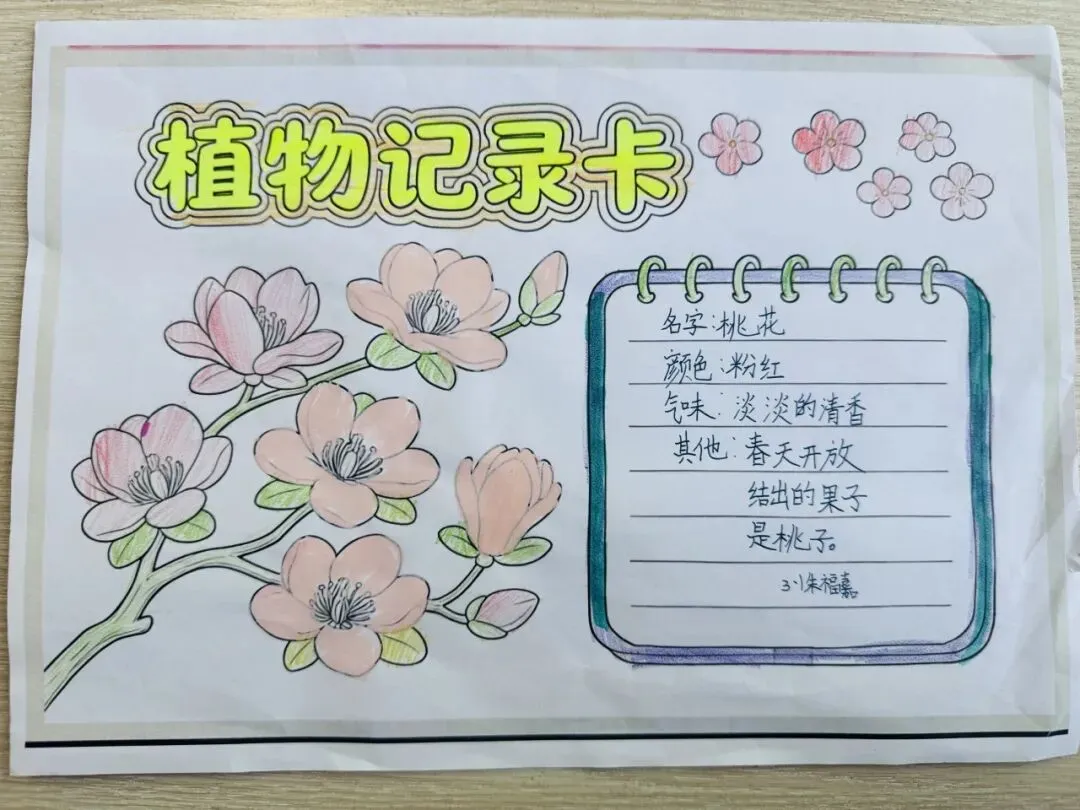 植物记录卡
名字:桃花
颜色:粉红
气味:淡淡的清香
其他:春天开放
结出的果子
是桃子。
3.1朱福嘉